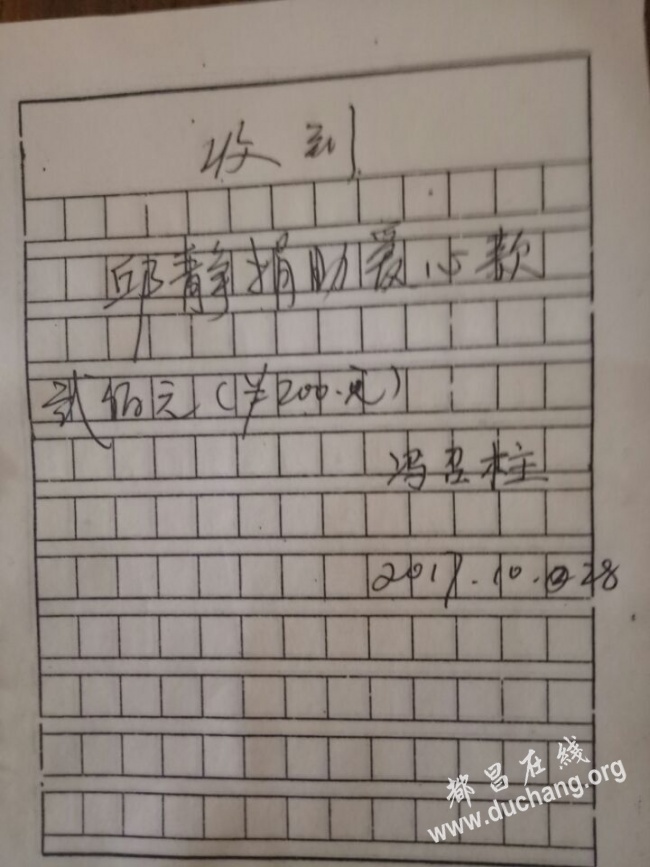 收到
邱静捐助爱心款
贰佰元(¥200.元)
冯
2017.10.28
都昌在线
www.duchang.org